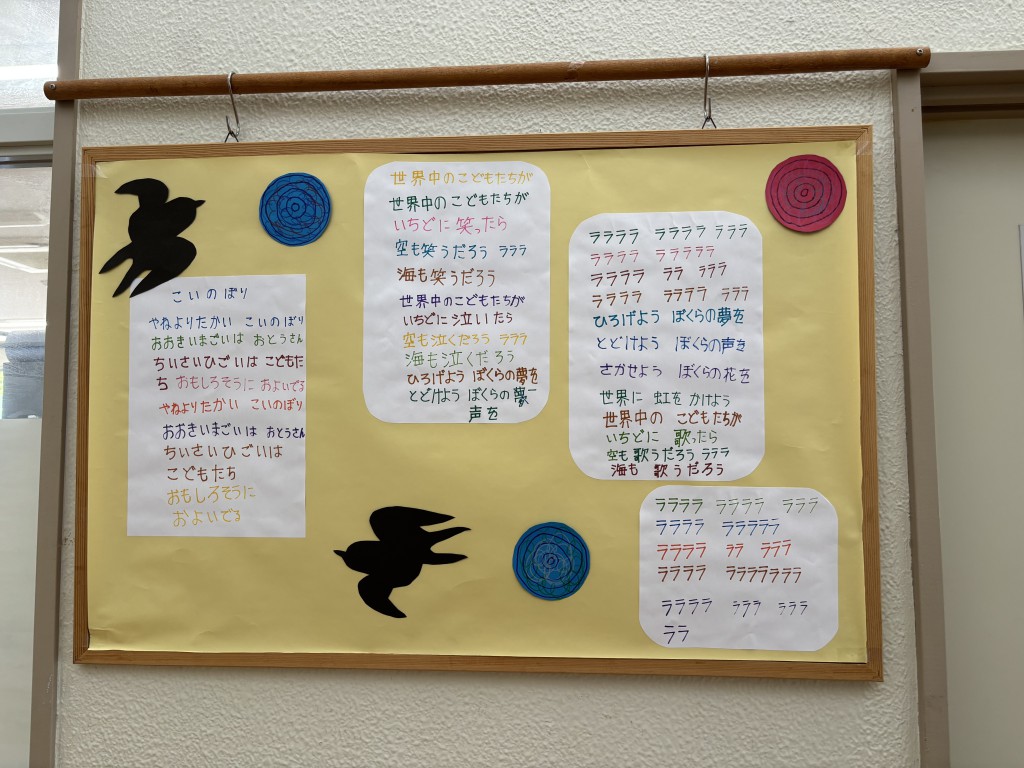 こいのぼり
やねよりたかい こいのぼり
おおきいまごいは おとうさん
ちいさいひごいは こどもた
ち おもしろそうに およいでる
やねよりたかい こいのぼり
おおきいまごいは おとうさん
ちいさいひごいは
こどもたち
おもしろそうに
およいでる
世界中のこどもたちが
世界中のこどもたちが
いちどに笑ったら
空も笑うだろう ラララ
海も笑うだろう
世界中のこどもたちが
いちどに泣いたら
空も泣くだろう ラララ
海も泣くだろう
ひろげよう ぼくらの夢を
とどけよう ぼくらの
声を
ララララ ララララ ラララ
ララララ ラララララ
ララララ ララ ラララ
ララララ ララララ ラララ
ひろげよう ぼくらの夢を
とどけよう ぼくらの声を
さかせよう ぼくらの花を
世界に 虹を かけよう
世界中の こどもたちが
いちどに 歌ったら
空も歌うだろう ラララ
海も 歌うだろう
ララララ ララララ ラララ
ララララ ラララララ
ララララ ララ ラララ
ララララ ララララララ
ララララ ラララ ラララ
ララ